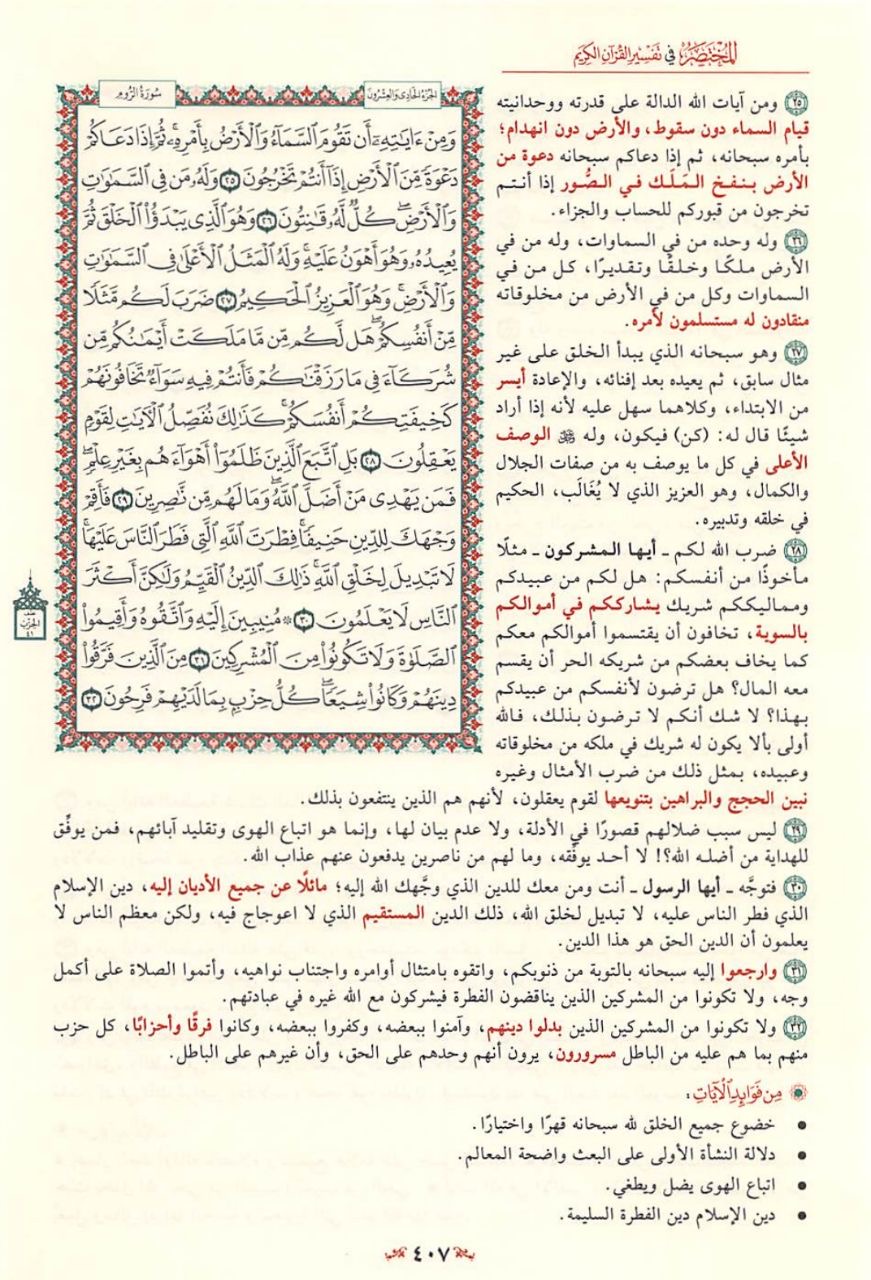 المختصر في تفسير القرآن الكريم
سورة الروم
الجزء الحادي والعشرون
وَمِنْ ءَايَٰتِهِۦٓ أَن تَقُومَ ٱلسَّمَآءُ وَٱلْأَرْضُ بِأَمْرِهِۦ ۚ ثُمَّ إِذَا دَعَاكُمْ
دَعْوَةً مِّنَ ٱلْأَرْضِ إِذَآ أَنتُمْ تَخْرُجُونَ ٢٥ وَلَهُۥ مَن فِى ٱلسَّمَٰوَٰتِ
وَٱلْأَرْضِ ۖ كُلٌّ لَّهُۥ قَٰنِتُونَ ٢٦ وَهُوَ ٱلَّذِى يَبْدَؤُا۟ ٱلْخَلْقَ ثُمَّ
يُعِيدُهُۥ وَهُوَ أَهْوَنُ عَلَيْهِ ۚ وَلَهُ ٱلْمَثَلُ ٱلْأَعْلَىٰ فِى ٱلسَّمَٰوَٰتِ
وَٱلْأَرْضِ ۚ وَهُوَ ٱلْعَزِيزُ ٱلْحَكِيمُ ٢٧ ضَرَبَ لَكُم مَّثَلًا
مِّنْ أَنفُسِكُمْ ۖ هَل لَّكُم مِّن مَّا مَلَكَتْ أَيْمَٰنُكُم مِّن
شُرَكَآءَ فِى مَا رَزَقْنَٰكُمْ فَأَنتُمْ فِيهِ سَوَآءٌ تَخَافُونَهُمْ
كَخِيفَتِكُمْ أَنفُسَكُمْ ۚ كَذَٰلِكَ نُفَصِّلُ ٱلْءَايَٰتِ لِقَوْمٍ
يَعْقِلُونَ ٢٨ بَلِ ٱتَّبَعَ ٱلَّذِينَ ظَلَمُوٓا۟ أَهْوَآءَهُم بِغَيْرِ عِلْمٍ ۖ
فَمَن يَهْدِى مَنْ أَضَلَّ ٱللَّهُ ۖ وَمَا لَهُم مِّن نَّٰصِرِينَ ٢٩ فَأَقِمْ
وَجْهَكَ لِلدِّينِ حَنِيفًا ۚ فِطْرَتَ ٱللَّهِ ٱلَّتِى فَطَرَ ٱلنَّاسَ عَلَيْهَا ۚ
لَا تَبْدِيلَ لِخَلْقِ ٱللَّهِ ۚ ذَٰلِكَ ٱلدِّينُ ٱلْقَيِّمُ وَلَٰكِنَّ أَكْثَرَ
ٱلنَّاسِ لَا يَعْلَمُونَ ٣٠ ۞ مُنِيبِينَ إِلَيْهِ وَٱتَّقُوهُ وَأَقِيمُوا۟
ٱلصَّلَوٰةَ وَلَا تَكُونُوا۟ مِنَ ٱلْمُشْرِكِينَ ٣١ مِنَ ٱلَّذِينَ فَرَّقُوا۟
دِينَهُمْ وَكَانُوا۟ شِيَعًا ۖ كُلُّ حِزْبٍۭ بِمَا لَدَيْهِمْ فَرِحُونَ ٣٢
نصف
الحزب
٤١
٢٥ ومن آيات الله الدالة على قدرته ووحدانيته
قيام السماء دون سقوط، والأرض دون انهدام؛
بأمره سبحانه، ثم إذا دعاكم سبحانه دعوة من
الأرض بنفخ المَلَك في الصُّور إذا أنتم
تخرجون من قبوركم للحساب والجزاء.
٢٦ وله وحده من في السماوات، وله من في
الأرض ملكًا وخلقًا وتقديرًا، كل من في
السماوات وكل من في الأرض من مخلوقاته
منقادون له مستسلمون لأمره.
٢٧ وهو سبحانه الذي يبدأ الخلق على غير
مثال سابق، ثم يعيده بعد إفنائه، والإعادة أيسر
من الابتداء، وكلاهما سهل عليه لأنه إذا أراد
شيئًا قال له: (كن) فيكون، وله ﷻ الوصف
الأعلى في كل ما يوصف به من صفات الجلال
والكمال، وهو العزيز الذي لا يُغَالَب، الحكيم
في خلقه وتدبيره.
٢٨ ضرب الله لكم ـ أيها المشركون ـ مثلًا
مأخوذًا من أنفسكم: هل لكم من عبيدكم
ومماليككم شريك يشارككم في أموالكم
بالسوية، تخافون أن يقتسموا أموالكم معكم
كما يخاف بعضكم من شريكه الحر أن يقسم
معه المال؟ هل ترضون لأنفسكم من عبيدكم
بهذا؟ لا شك أنكم لا ترضون بذلك، فالله
أولى بألا يكون له شريك في ملكه من مخلوقاته
وعبيده، بمثل ذلك من ضرب الأمثال وغيره
نبين الحجج والبراهين بتنويعها لقوم يعقلون، لأنهم هم الذين ينتفعون بذلك.
٢٩ ليس سبب ضلالهم قصورًا في الأدلة، ولا عدم بيان لها، وإنما هو اتباع الهوى وتقليد آبائهم، فمن يوفِّق
للهداية من أضله الله؟! لا أحد يوفِّقه، وما لهم من ناصرين يدفعون عنهم عذاب الله.
٣٠ فتوجَّه ـ أيها الرسول ـ أنت ومن معك للدين الذي وجَّهك الله إليه؛ مائلًا عن جميع الأديان إليه، دين الإسلام
الذي فطر الناس عليه، لا تبديل لخلق الله، ذلك الدين المستقيم الذي لا اعوجاج فيه، ولكن معظم الناس لا
يعلمون أن الدين الحق هو هذا الدين.
٣١ وارجعوا إليه سبحانه بالتوبة من ذنوبكم، واتقوه بامتثال أوامره واجتناب نواهيه، وأتموا الصلاة على أكمل
وجه، ولا تكونوا من المشركين الذين يناقضون الفطرة فيشركون مع الله غيره في عبادتهم.
٣٢ ولا تكونوا من المشركين الذين بدلوا دينهم، وآمنوا ببعضه، وكفروا ببعضه، وكانوا فرقًا وأحزابًا، كل حزب
منهم بما هم عليه من الباطل مسرورون، يرون أنهم وحدهم على الحق، وأن غيرهم على الباطل.
من فوائد الآيات:
• خضوع جميع الخلق لله سبحانه قهرًا واختيارًا.
• دلالة النشأة الأولى على البعث واضحة المعالم.
• اتباع الهوى يضل ويطغي.
• دين الإسلام دين الفطرة السليمة.
٤٠٧